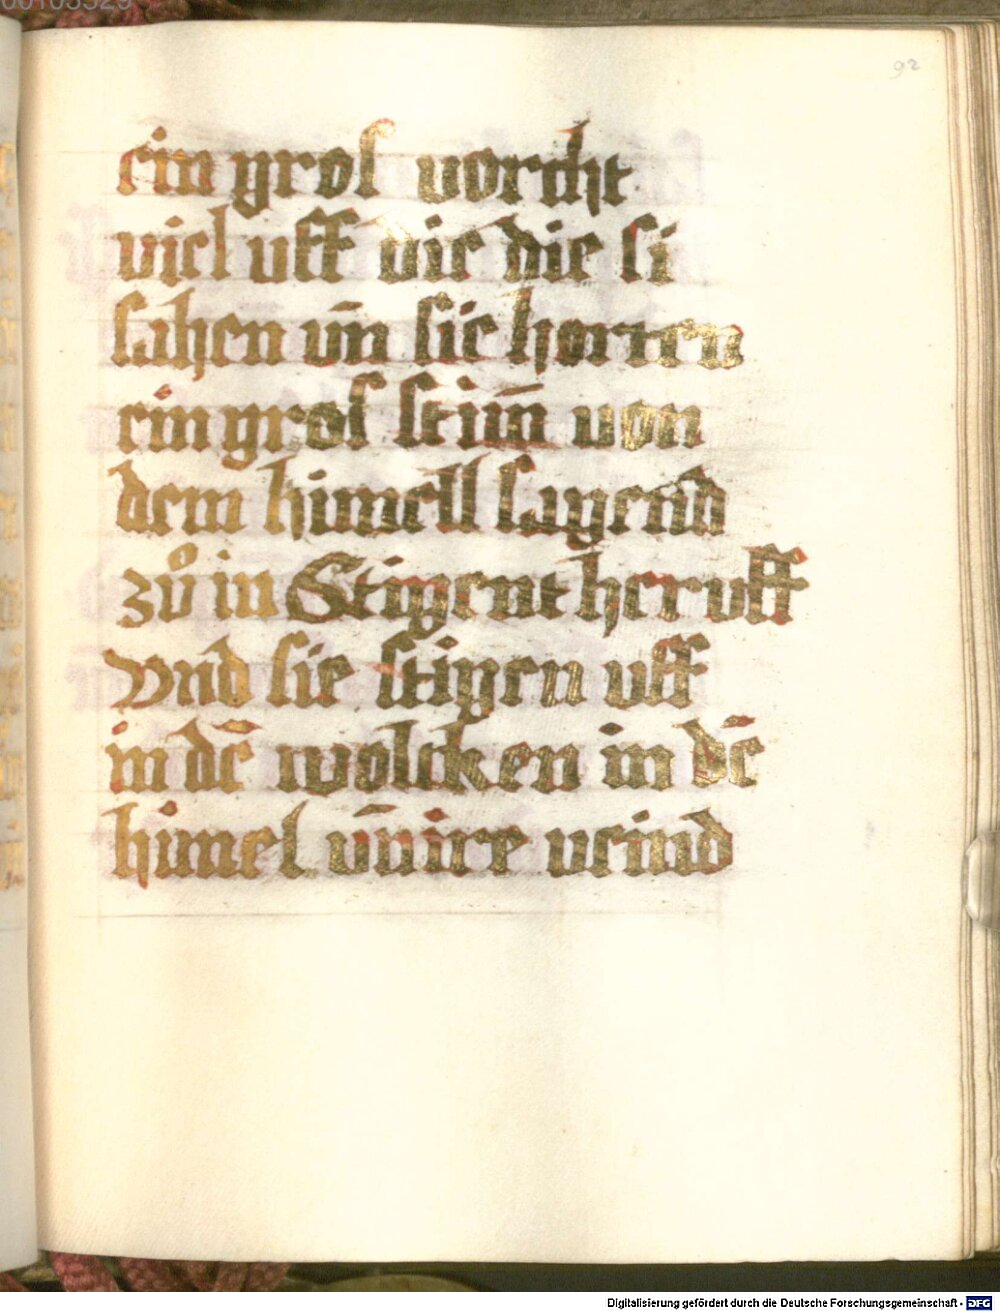 92
ein gros vorcht
viel uff vie die si
sahen vn̄ sie horten
ein gros stim̄ von
dem himell sagend
zů in Stigent her uff
Vnd sie stigen uff
in dē wolcken in dē
himel vn̄ ire veind
Digitalisierung gefördert durch die Deutsche Forschungsgemeinschaft - DFG